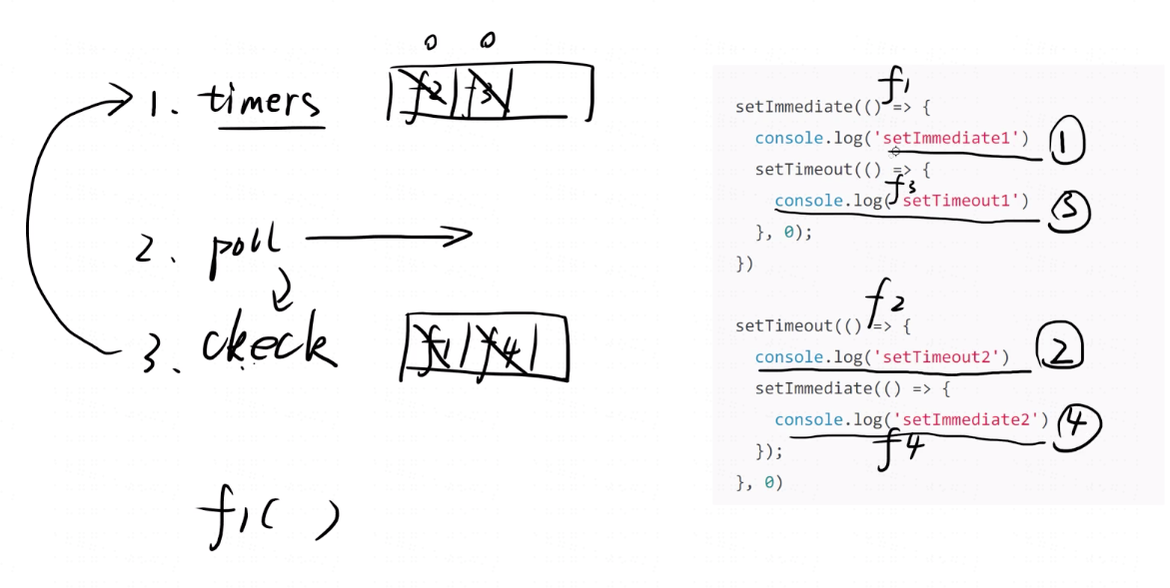 0 0
1. timers f2 f3
2. poll
3. check f1 f4
f1( )
f1
setImmediate(() => {
console.log('setImmediate1') ①
setTimeout(() => {
f3
console.log('setTimeout1') ③
}, 0);
})
f2
setTimeout(() => {
console.log('setTimeout2') ②
setImmediate(() => {
console.log('setImmediate2') ④
f4
});
}, 0)